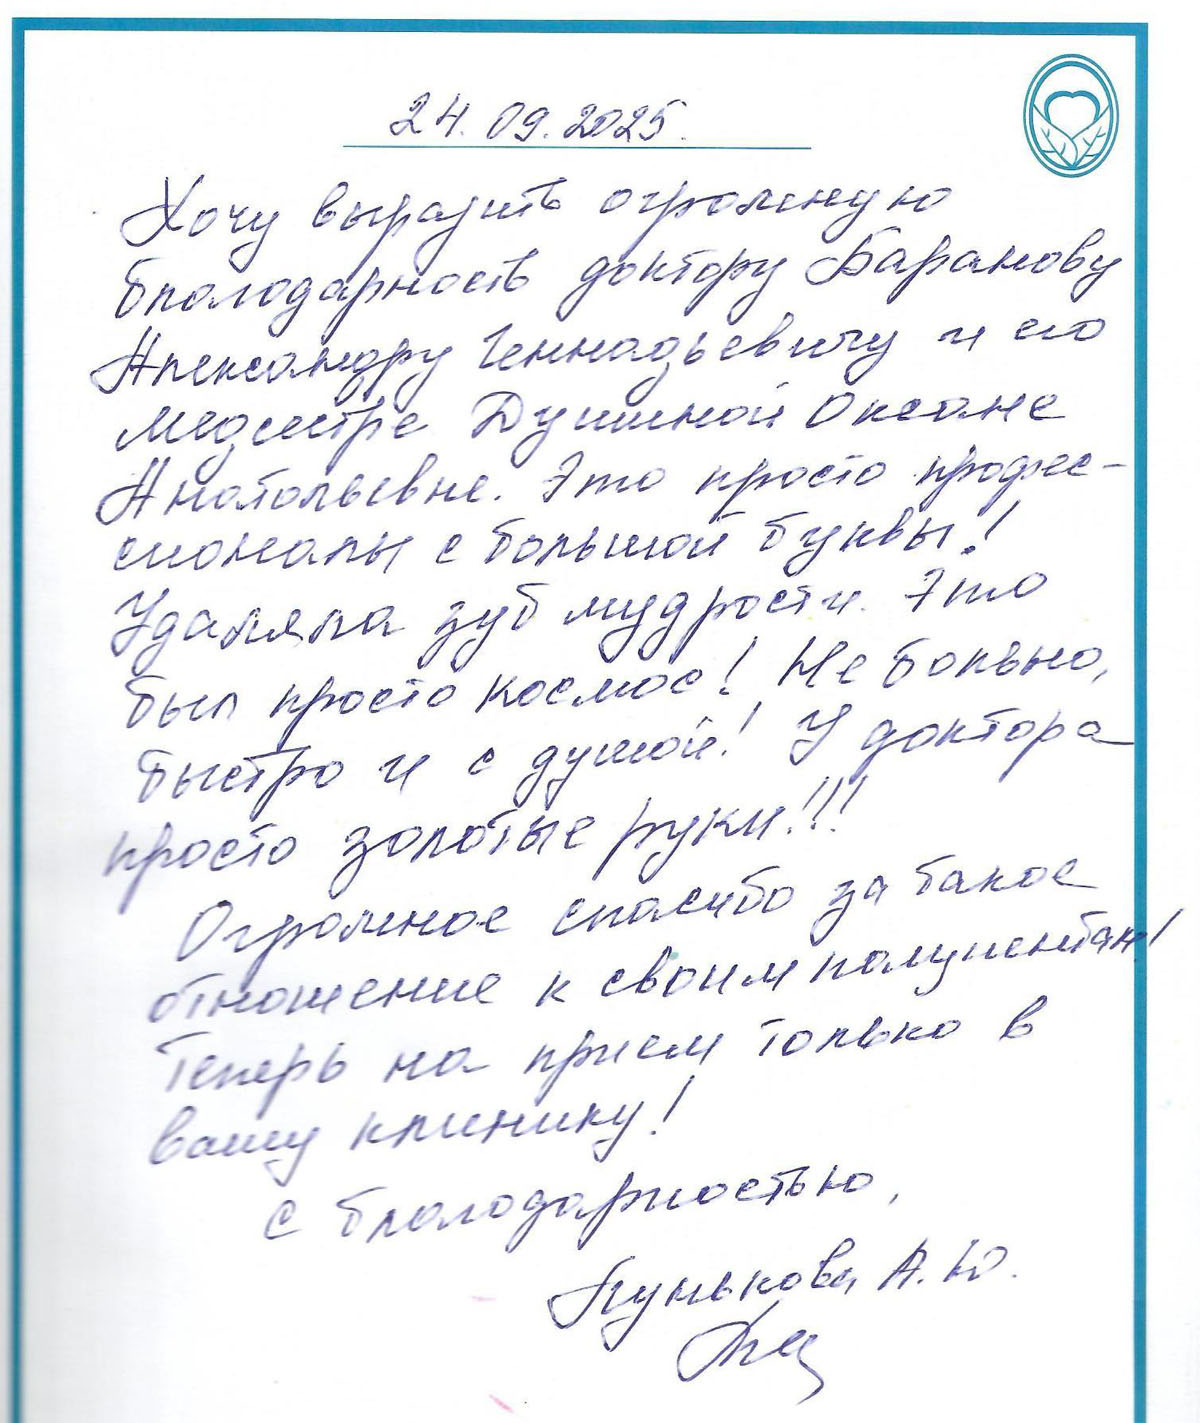 24.09.2025.
Хочу выразить огромную
благодарность доктору Баранову
Александру Геннадьевичу и его
медсестре Душиной Оксане
Анатольевне. Это просто профес-
сионалы с большой буквы!
Удаляла зуб мудрости. Это
был просто космос! Не больно,
быстро и с душой! У доктора
просто золотые руки!!!
Огромное спасибо за такое
отношение к своим пациентам!
Теперь на прием только в
вашу клинику!
С благодарностью,
Пунькова А.Ю.